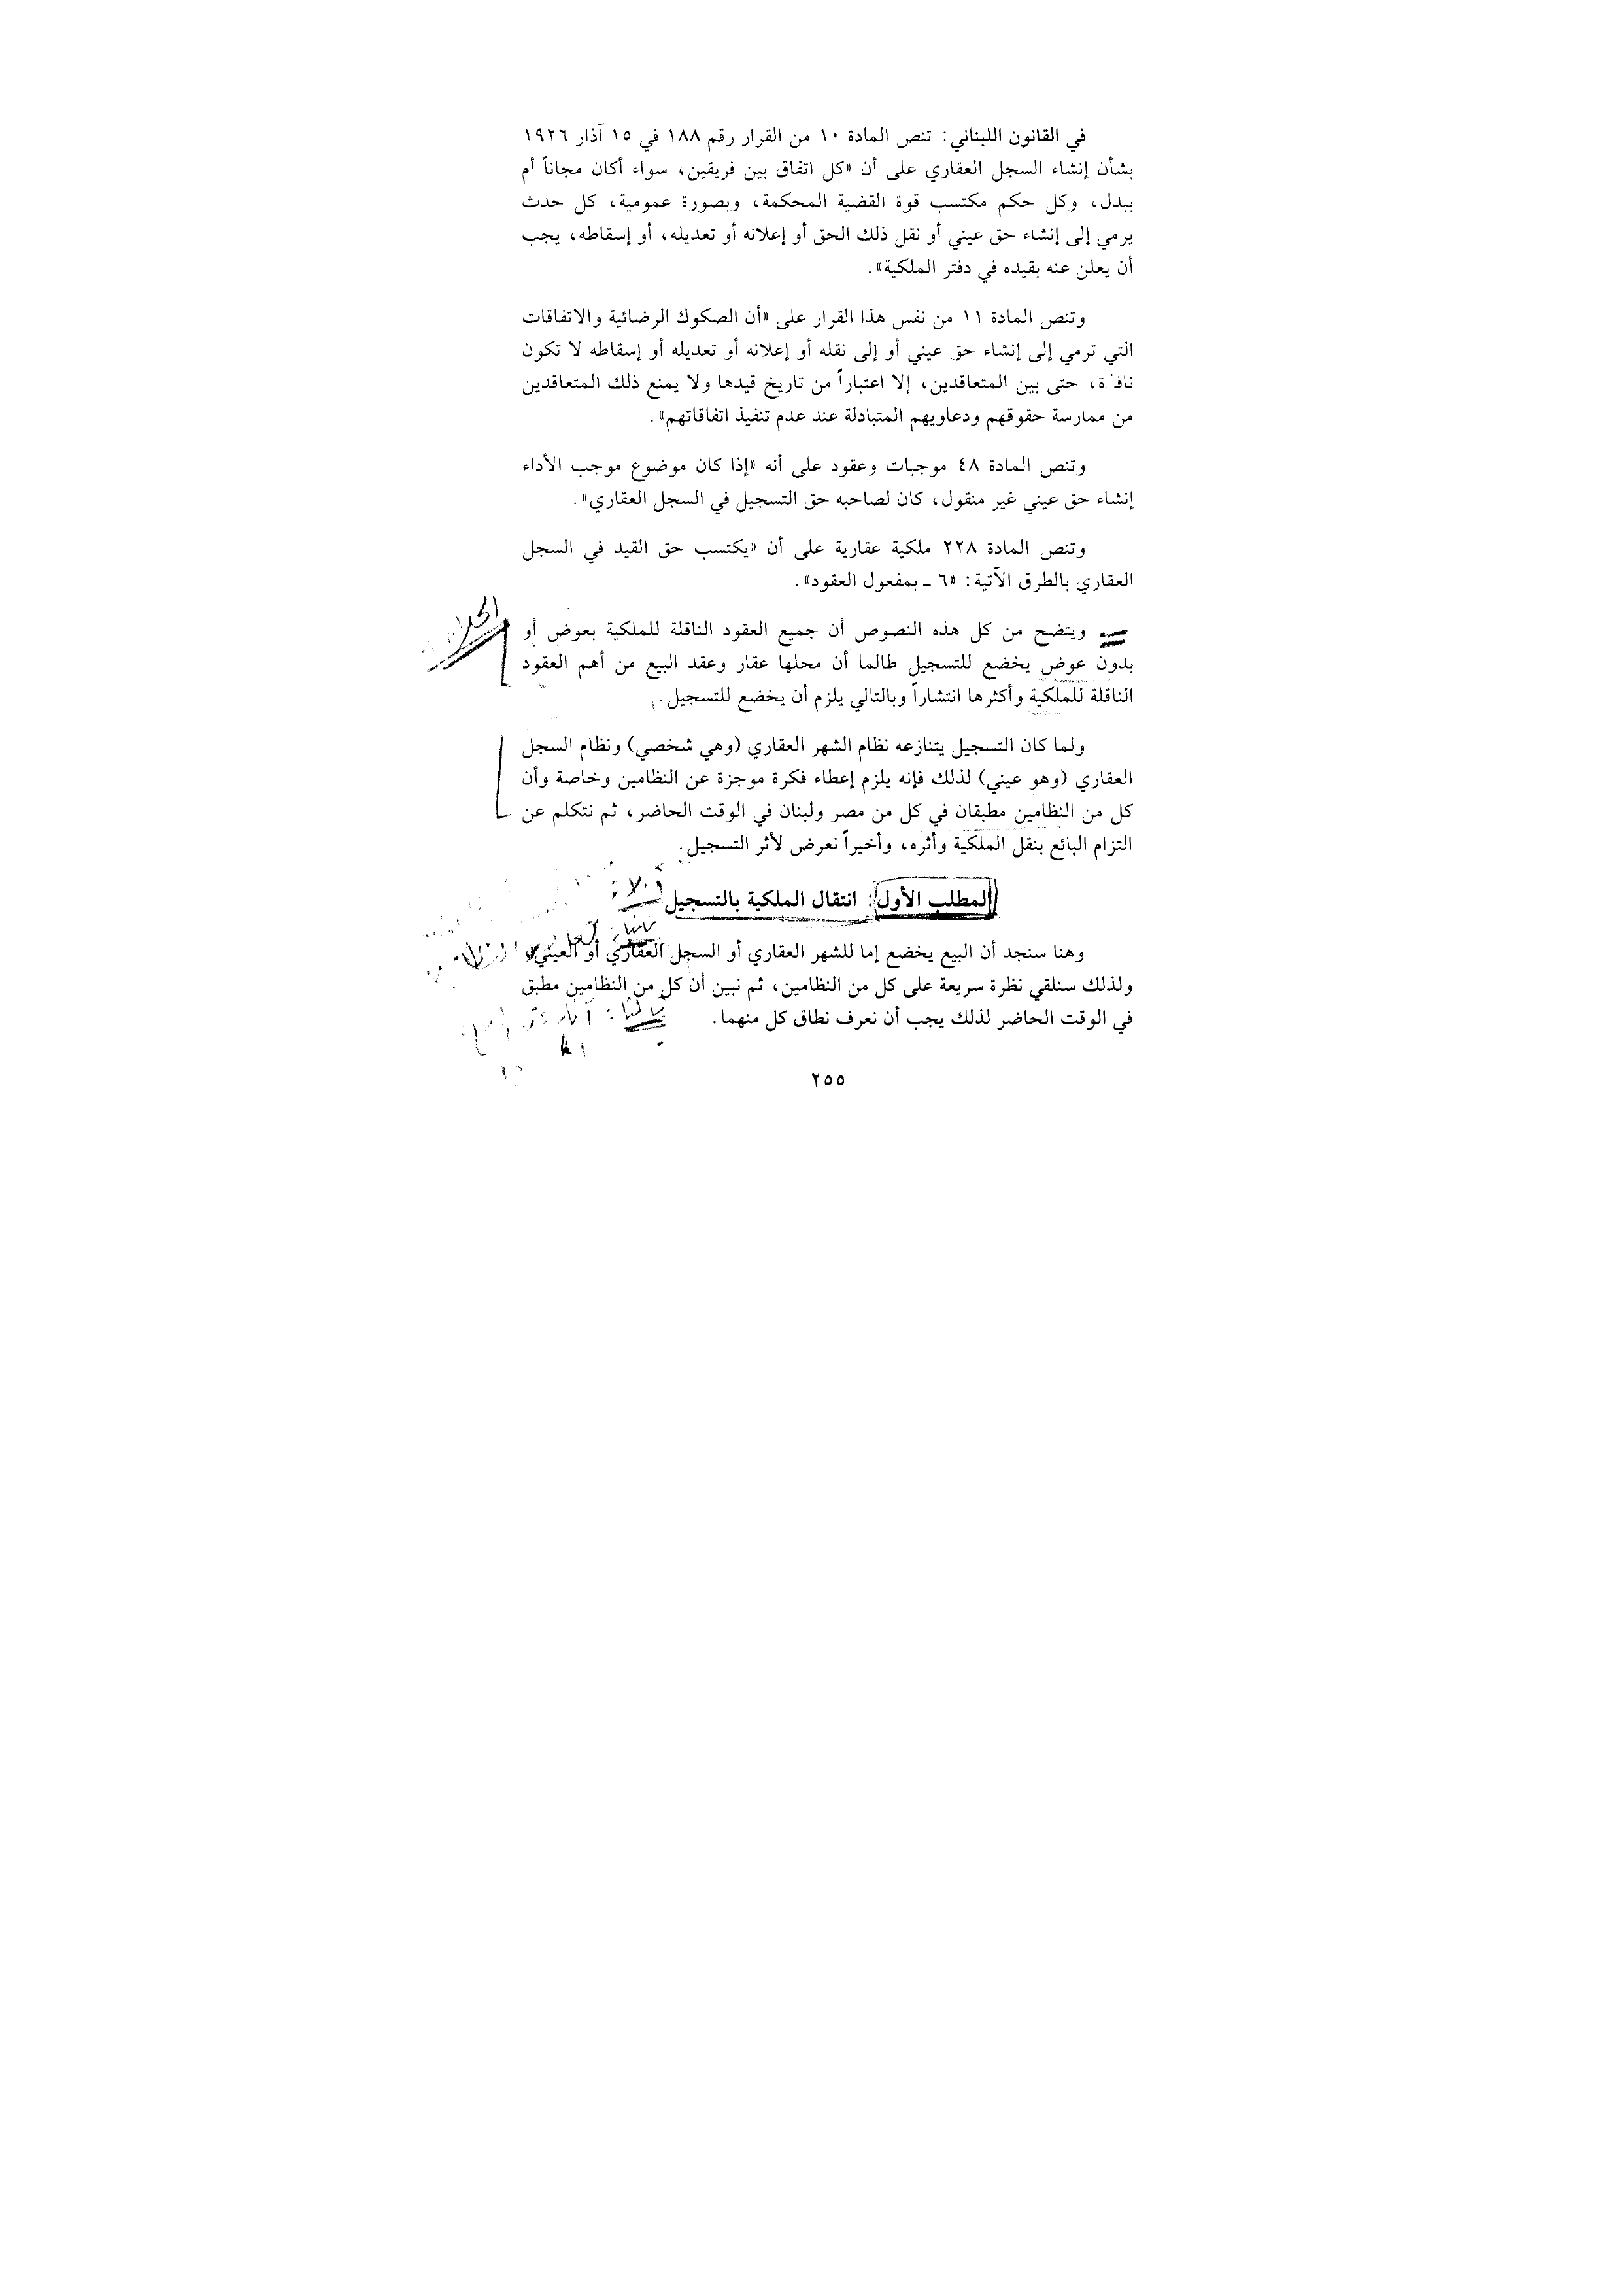 في القانون اللبناني: تنص المادة ١٠ من القرار رقم ١٨٨ في ١٥ آذار ١٩٢٦
بشأن إنشاء السجل العقاري على أن «كل اتفاق بين فريقين، سواء أكان مجاناً أم
ببدل، وكل حكم مكتسب قوة القضية المحكمة، وبصورة عمومية، كل حدث
يرمي إلى إنشاء حق عيني أو نقل ذلك الحق أو إعلانه أو تعديله، أو إسقاطه، يجب
أن يعلن عنه بقيده في دفتر الملكية».
وتنص المادة ١١ من نفس هذا القرار على «أن الصكوك الرضائية والاتفاقات
التي ترمي إلى إنشاء حق عيني أو إلى نقله أو إعلانه أو تعديله أو إسقاطه لا تكون
نافذة، حتى بين المتعاقدين، إلا اعتباراً من تاريخ قيدها ولا يمنع ذلك المتعاقدين
من ممارسة حقوقهم ودعاويهم المتبادلة عند عدم تنفيذ اتفاقاتهم».
وتنص المادة ٤٨ موجبات وعقود على أنه «إذا كان موضوع موجب الأداء
إنشاء حق عيني غير منقول، كان لصاحبه حق التسجيل في السجل العقاري».
وتنص المادة ٢٢٨ ملكية عقارية على أن «يكتسب حق القيد في السجل
العقاري بالطرق الآتية: «٦ ـ بمفعول العقود».
ويتضح من كل هذه النصوص أن جميع العقود الناقلة للملكية بعوض أو
بدون عوض يخضع للتسجيل طالما أن محلها عقار وعقد البيع من أهم العقود
الناقلة للملكية وأكثرها انتشاراً وبالتالي يلزم أن يخضع للتسجيل.
ولما كان التسجيل يتنازعه نظام الشهر العقاري (وهي شخصي) ونظام السجل
العقاري (وهو عيني) لذلك فإنه يلزم إعطاء فكرة موجزة عن النظامين وخاصة وأن
كل من النظامين مطبقان في كل من مصر ولبنان في الوقت الحاضر، ثم نتكلم عن
التزام البائع بنقل الملكية وأثره، وأخيراً نعرض لأثر التسجيل.
المطلب الأول: انتقال الملكية بالتسجيل
وهنا سنجد أن البيع يخضع إما للشهر العقاري أو السجل العقاري أو العيني
ولذلك سنلقي نظرة سريعة على كل من النظامين، ثم نبين أن كل من النظامين مطبق
في الوقت الحاضر لذلك يجب أن نعرف نطاق كل منهما.
٢٥٥